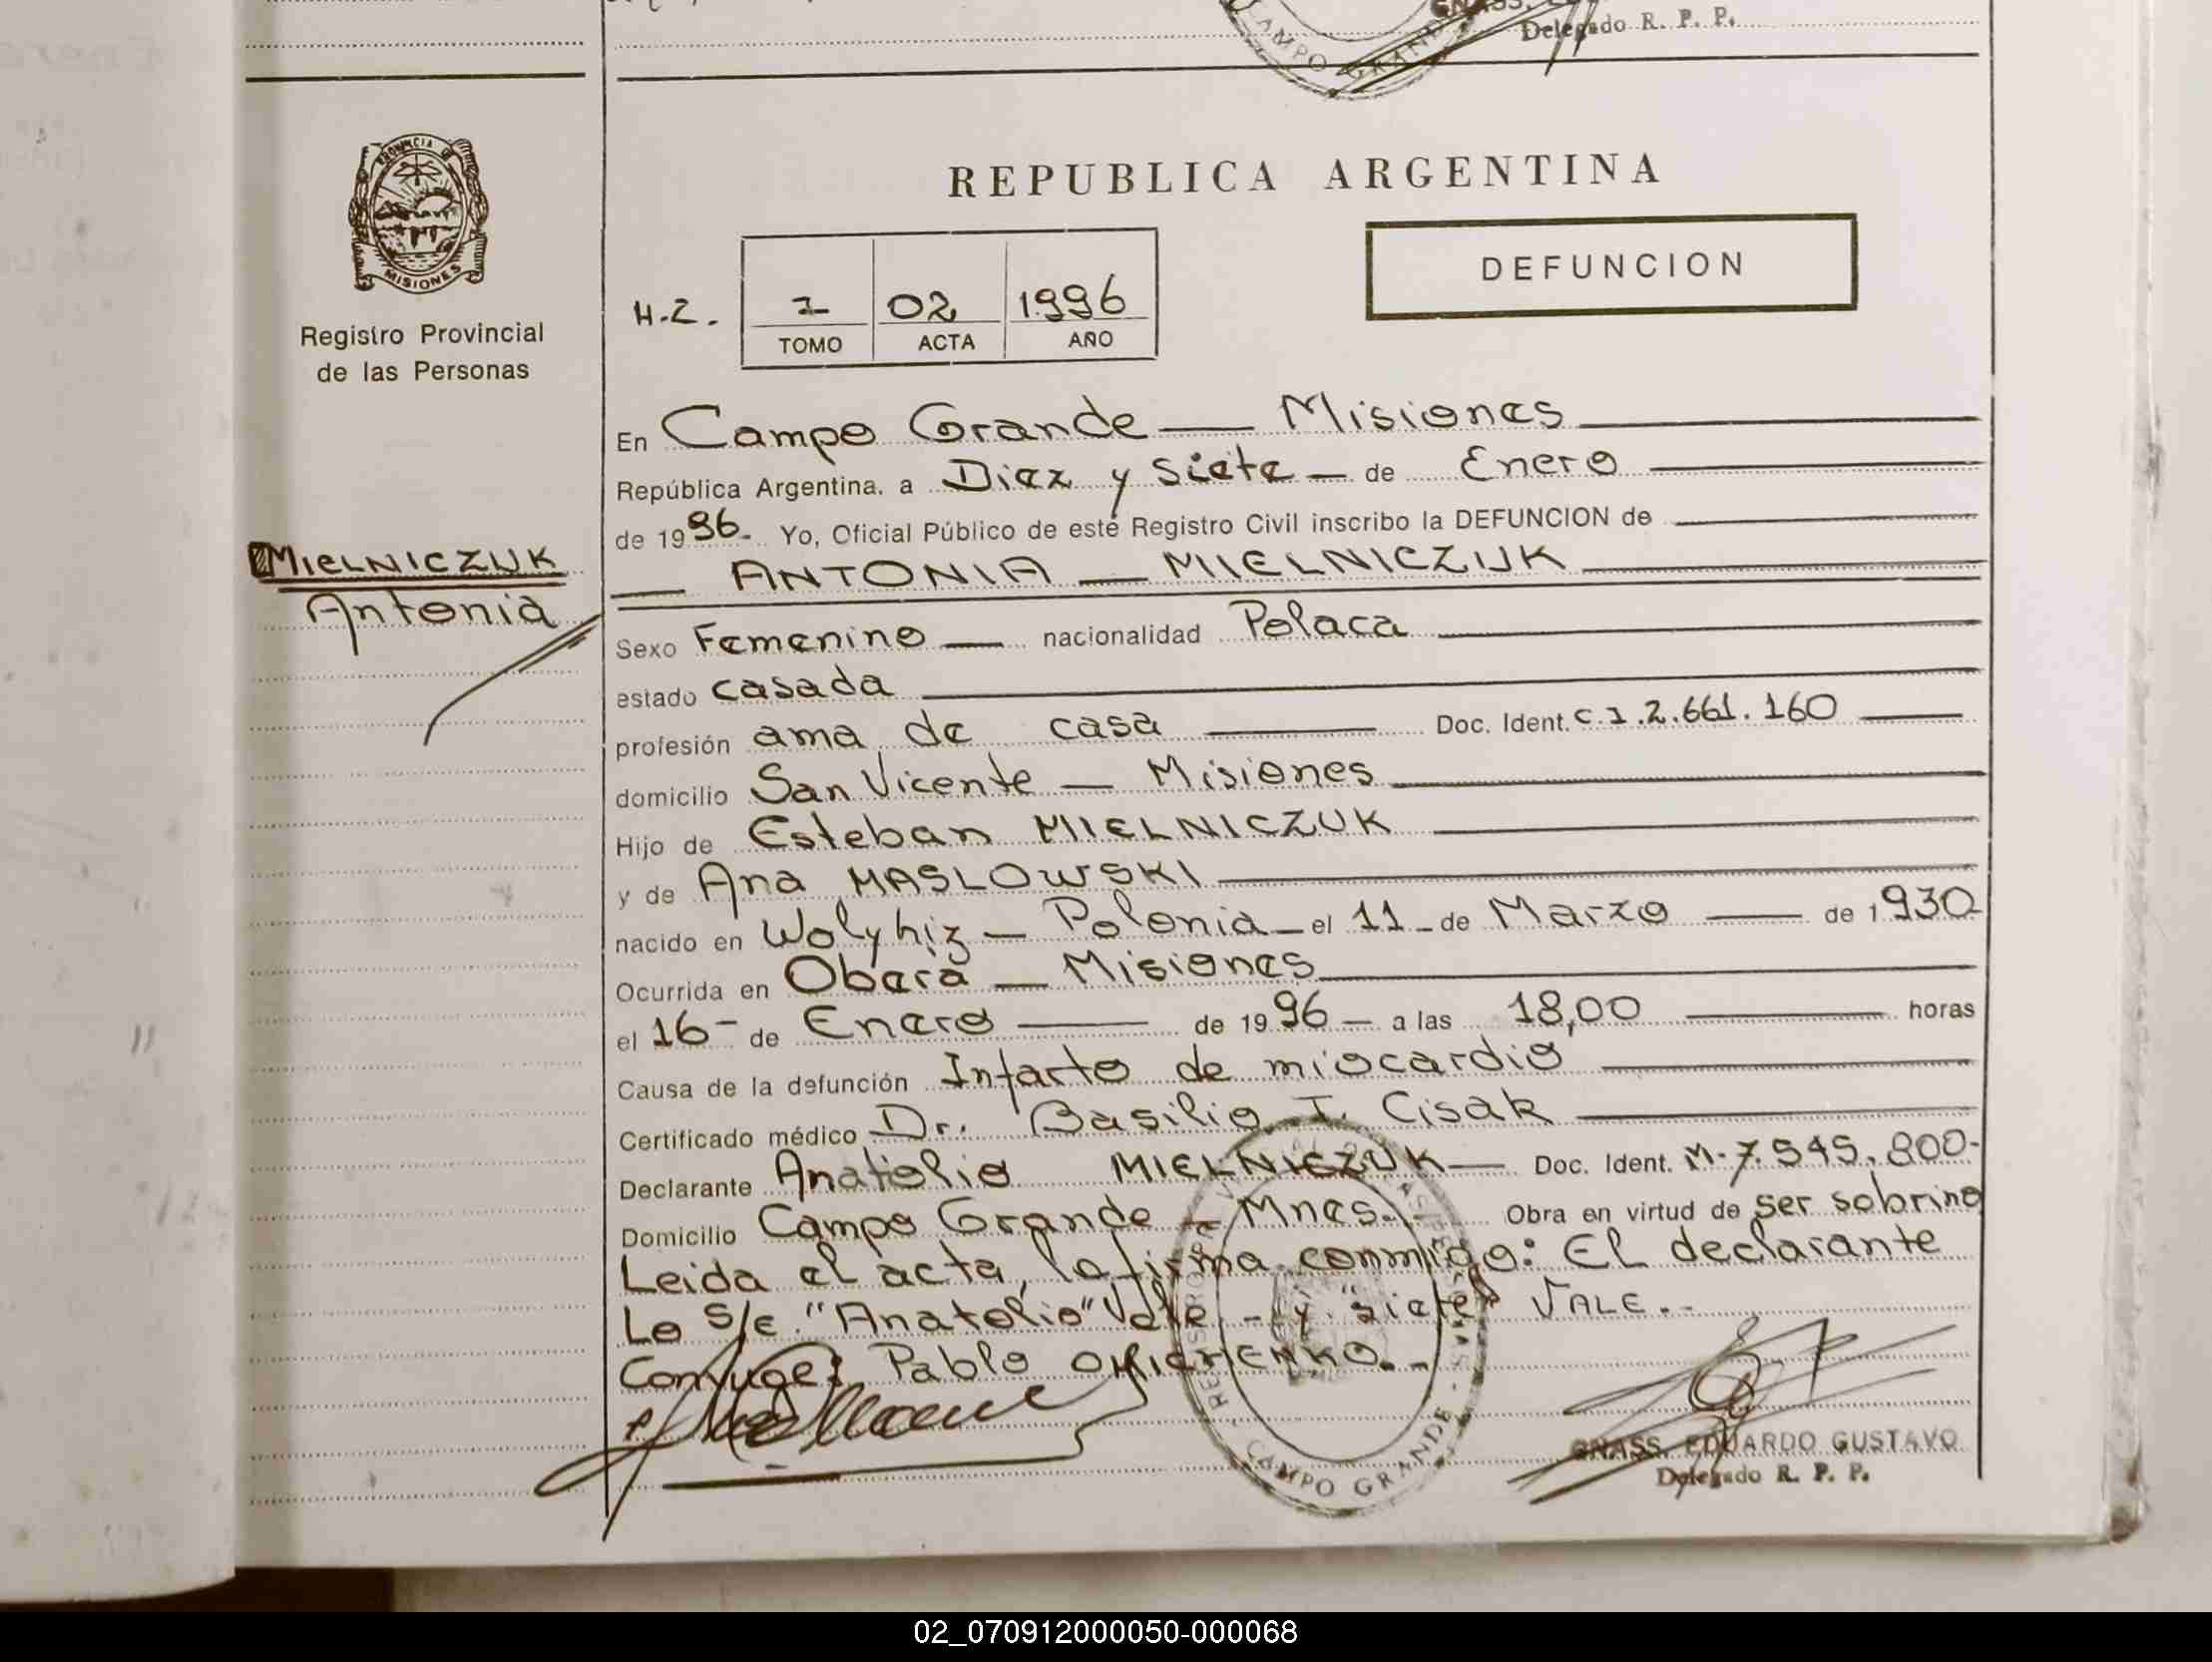 Delegado R. P. P.
CAMPO GRANDE
PROVINCIA DE
MISIONES
Registro Provincial
de las Personas
REPUBLICA ARGENTINA
DEFUNCION
H.Z. 1 02 1996
TOMO ACTA AÑO
En Campo Grande — Misiones
República Argentina, a Diez y siete — de Enero
de 1996- Yo, Oficial Público de este Registro Civil inscribo la DEFUNCION de
— ANTONIA — MIELNICZUK
MIELNICZUK
Antonia
Sexo Femenino — nacionalidad Polaca
estado casada
profesión ama de casa — Doc. Ident. C.I.2.661.160
domicilio San Vicente — Misiones
Hijo de Esteban MIELNICZUK
y de Ana MASLOWSKI
nacido en Wolyhiz — Polonia — el 11 - de Marzo — de 1930-
Ocurrida en Oberá — Misiones
el 16 - de Enero — de 1996 — a las 18,00 — horas
Causa de la defunción Infarto de miocardio
Certificado médico Dr. Basilio I. Cisak
Declarante Anatolio MIELNICZUK — Doc. Ident. M-7.545.800-
Domicilio Campo Grande - Mnes. Obra en virtud de ser sobrino
Leida el acta, la firma conmigo: El declarante
Lo s/e "Anatolio" Vale - y "siete" VALE.-
Conyuge: Pablo
CAMPO GRANDE
GNASS, EDUARDO GUSTAVO
Delegado R. P. P.
02_070912000050-000068